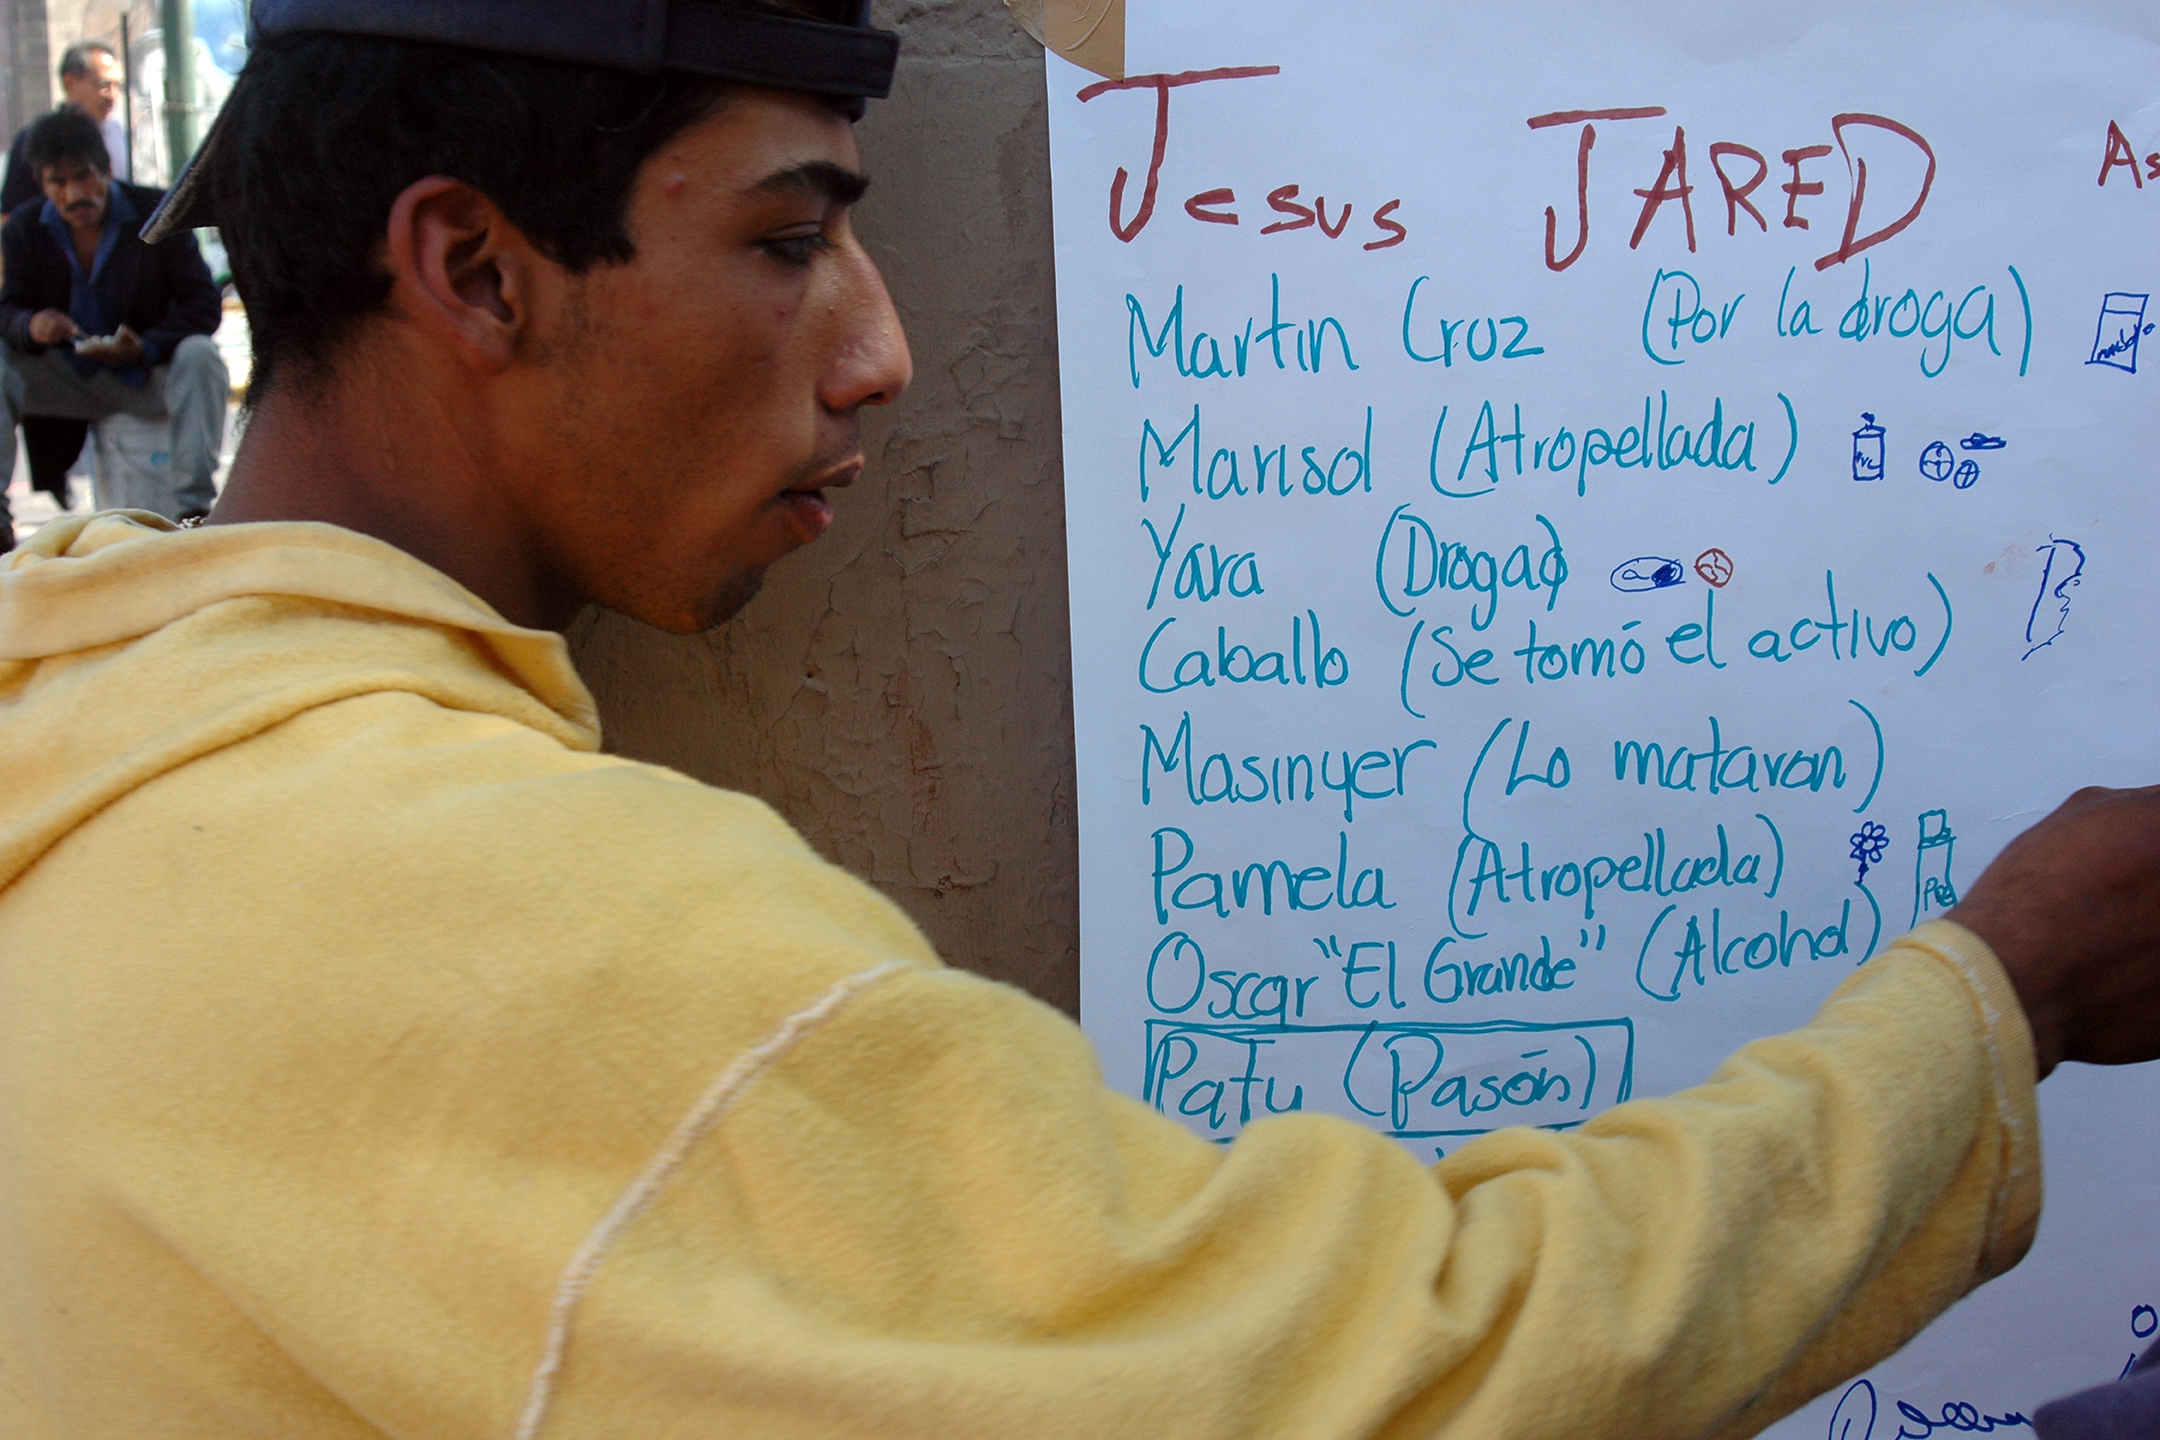 Jesus JARED As
Martin Cruz (Por la droga)
Marisol (Atropellada)
Yara (Droga)
Caballo (Se tomó el activo)
Masinyer (Lo mataron)
Pamela (Atropellada)
Oscar "El Grande" (Alcohol)
Paty (Pasón)